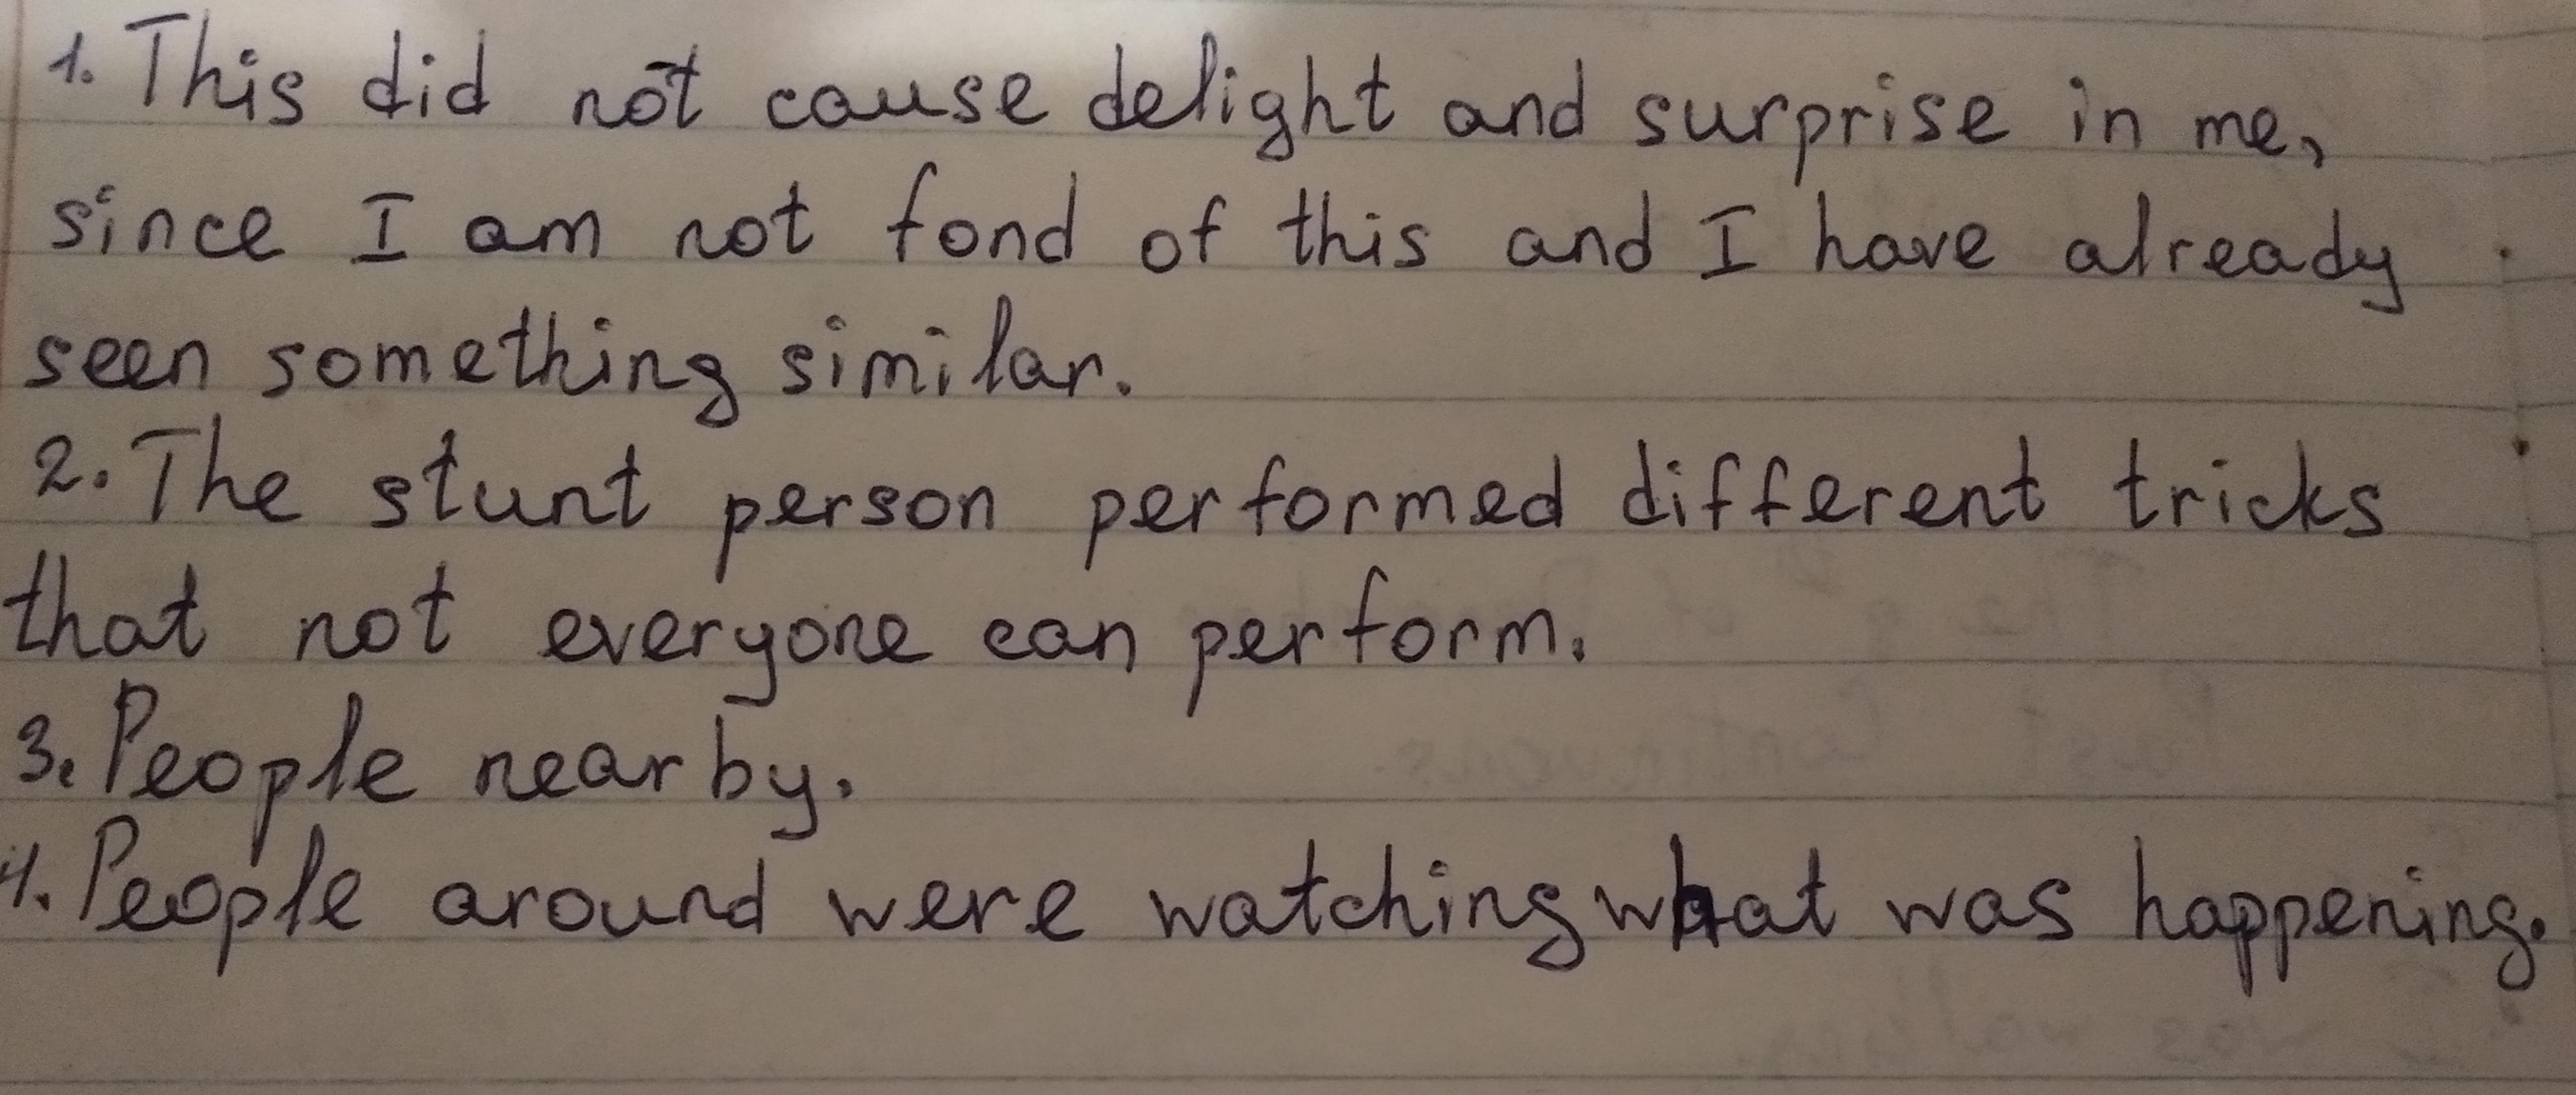 1. This did not cause delight and surprise in me,
since I am not fond of this and I have already
seen something similar.
2. The stunt person performed different tricks
that not everyone can perform.
3. People nearby.
4. People around were watching what was happening.